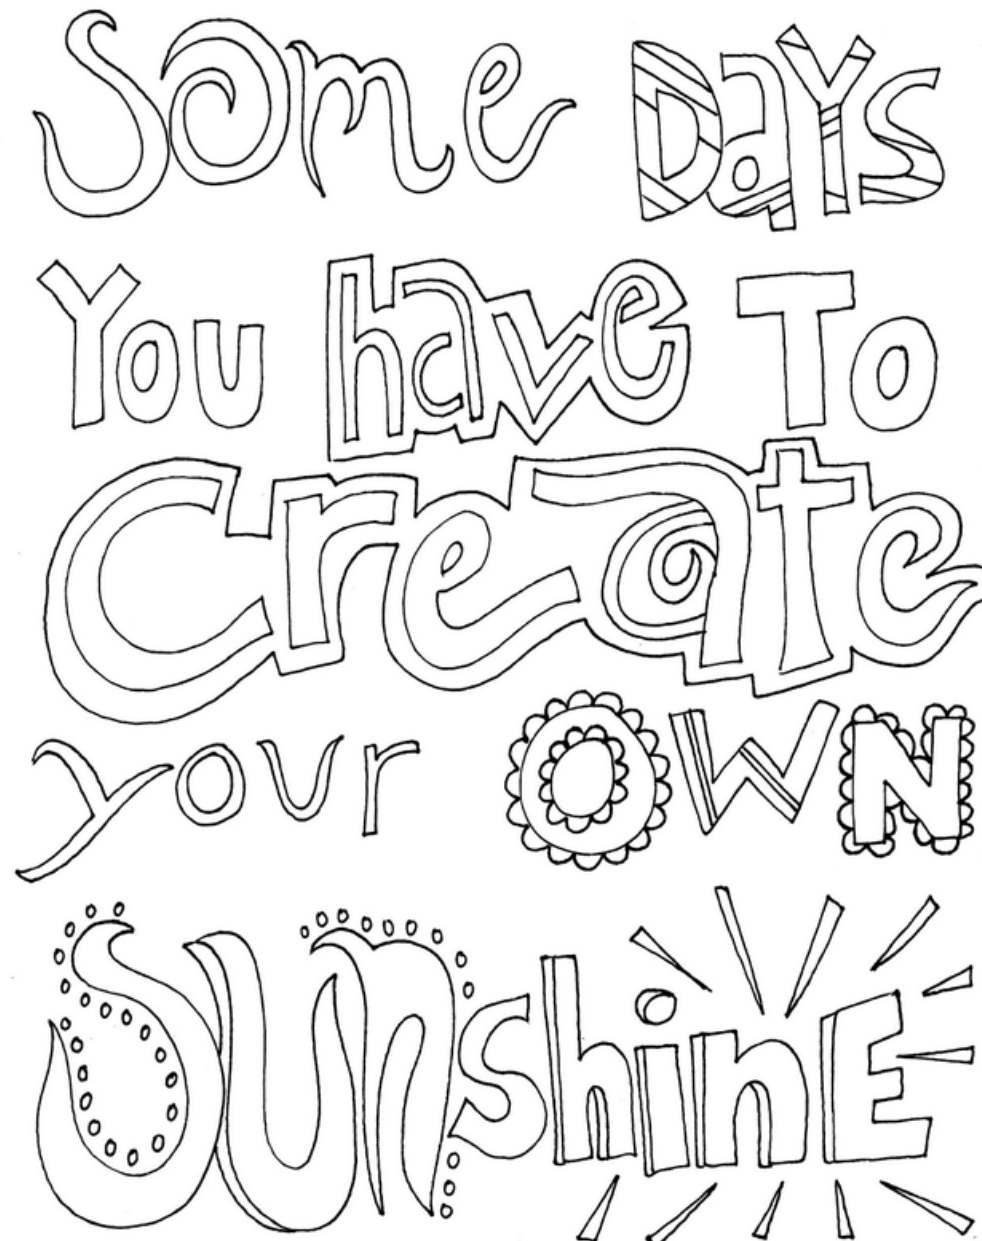 Some DaYs
You have To
Create
your OWN
SunshinE